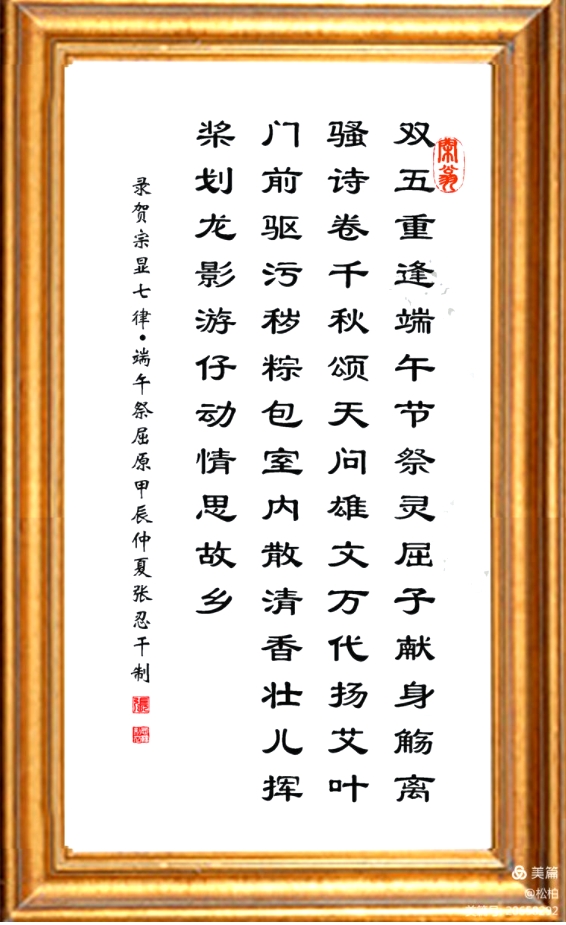 双五重逢端午节祭灵屈子献身觞离
骚诗卷千秋颂天问雄文万代扬艾叶
门前驱污秽粽包室内散清香壮儿挥
桨划龙影游仔动情思故乡
录贺宗显七律·端午祭屈原甲辰仲夏张忍干制
美篇
@松柏